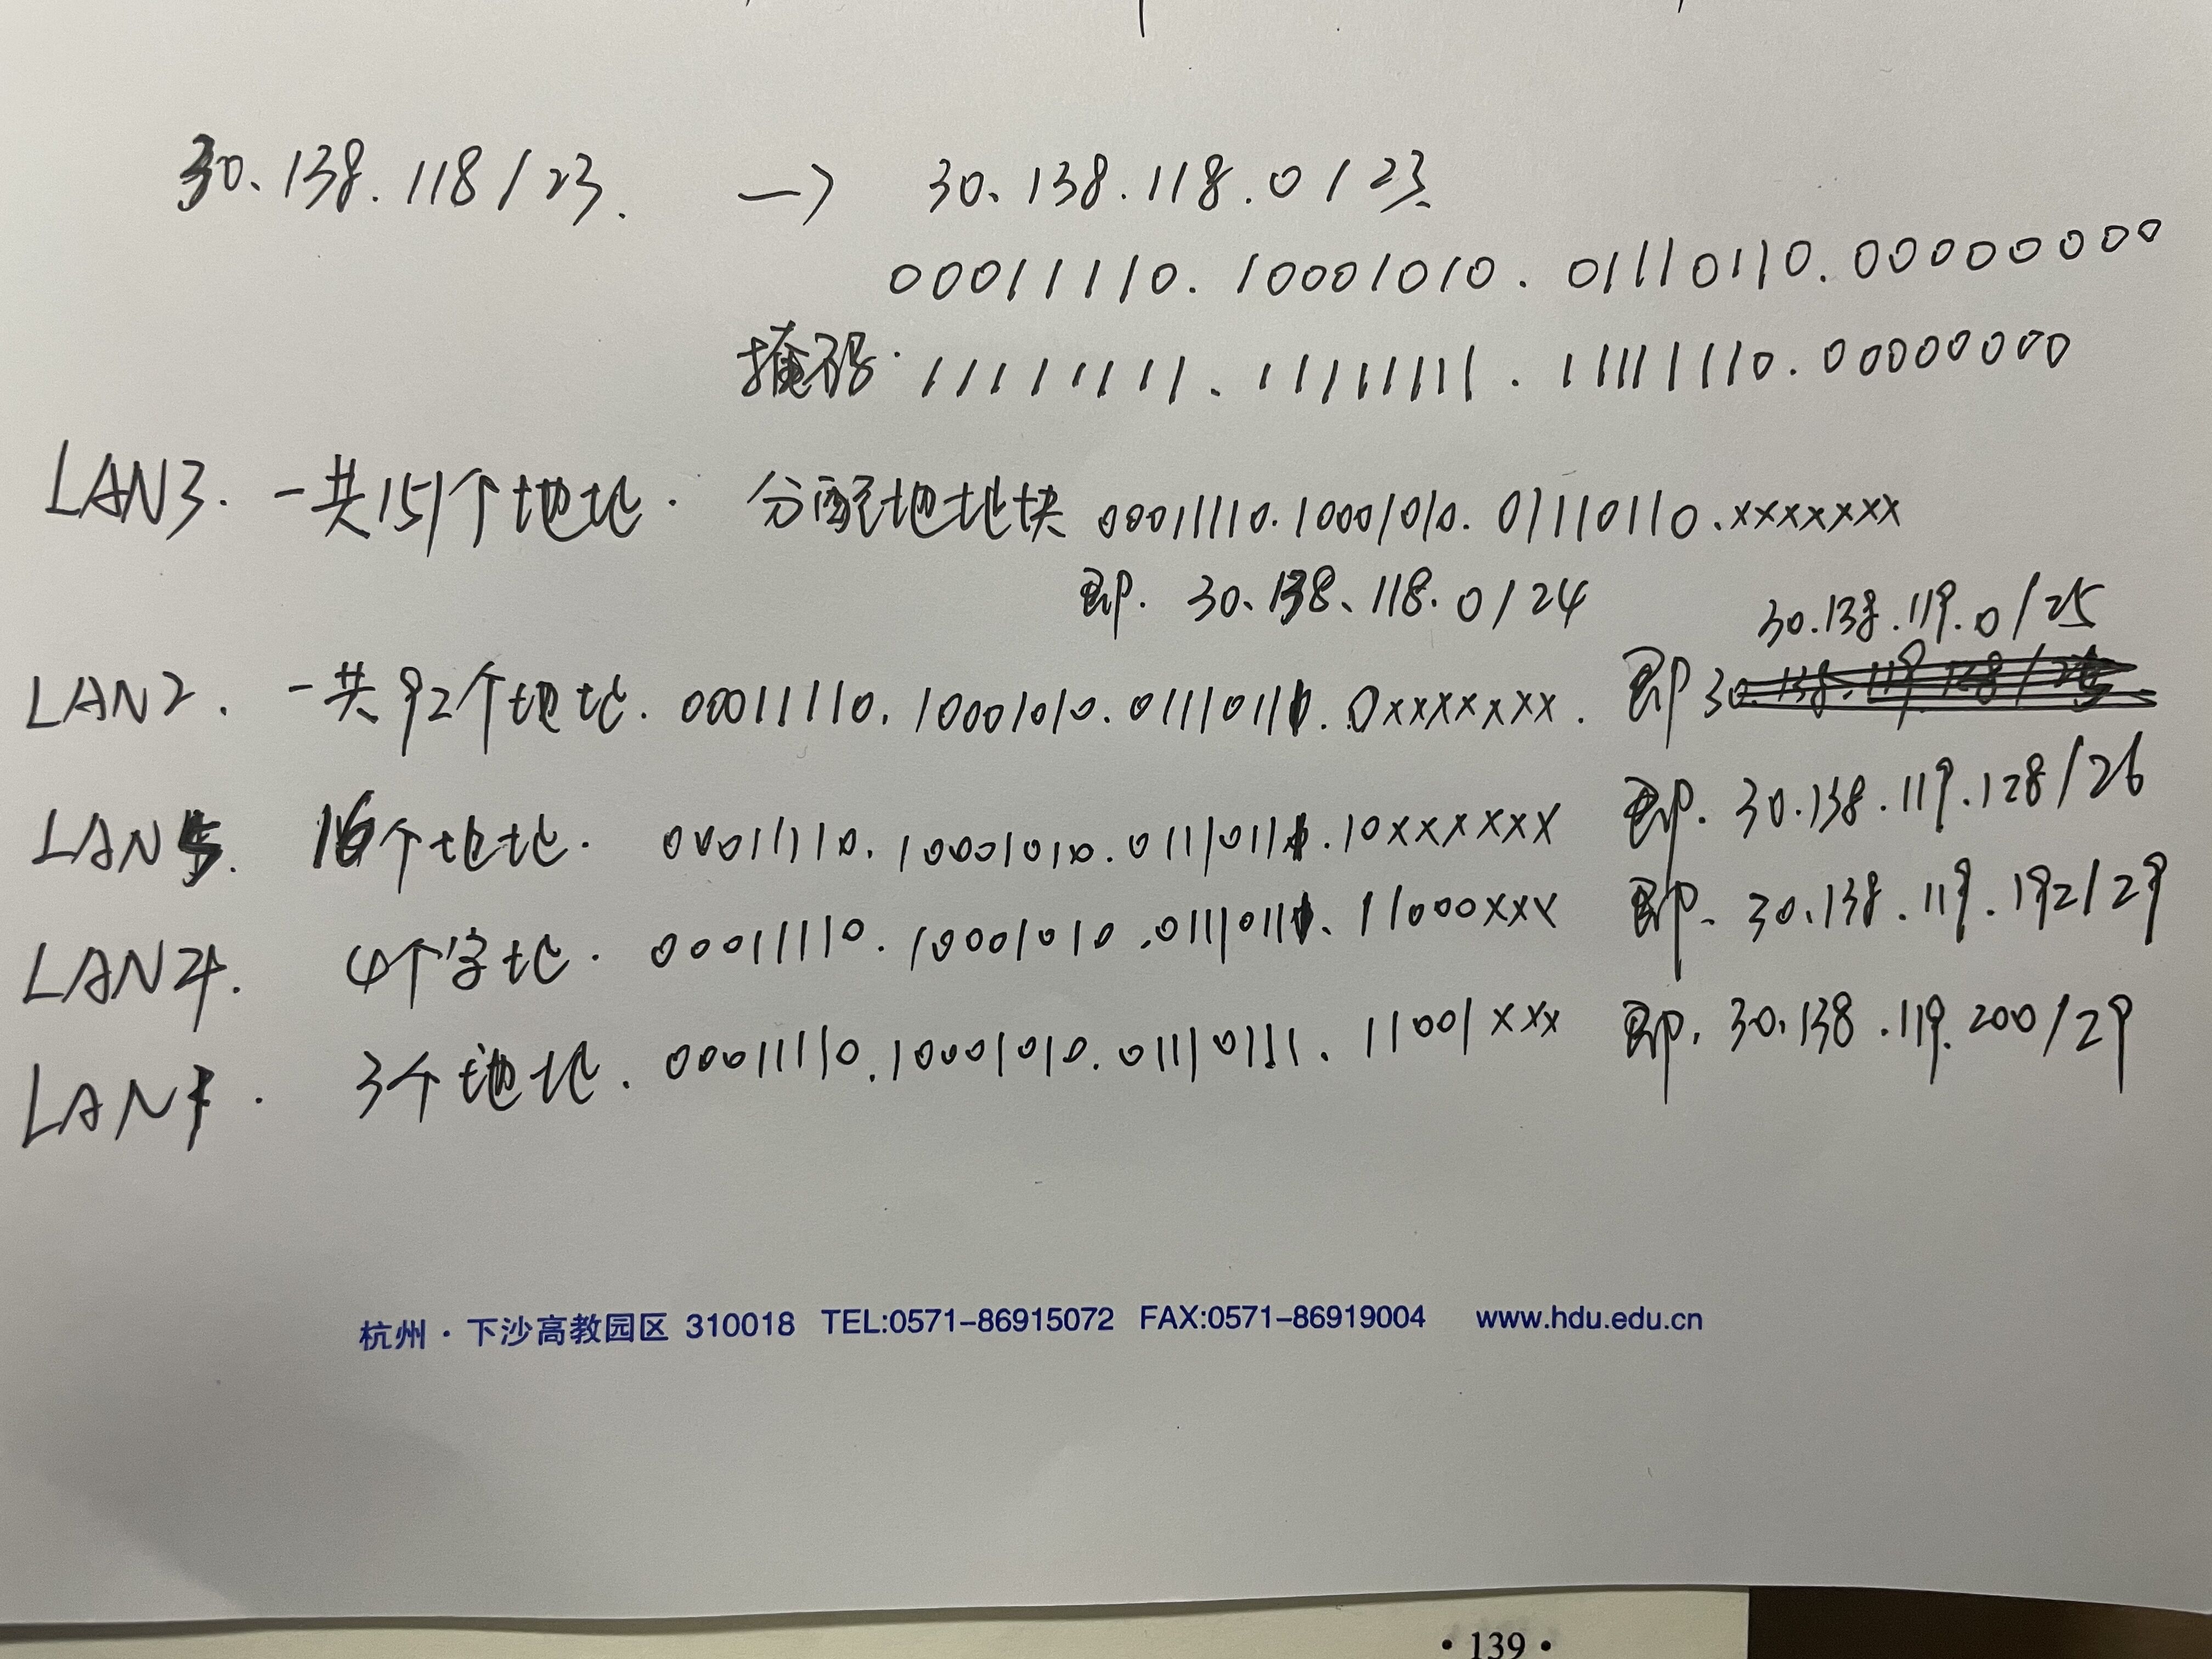 30.138.118/23. → 30.138.118.0/23
00011110.10001010.01110110.00000000
掩码:11111111.11111111.11111110.00000000
LAN3. 一共151个地址. 分配地址块 00011110.10001010.01110110.xxxxxxx
即. 30.138.118.0/24
30.138.119.0/25
LAN2. 一共92个地址. 00011110.10001010.01110111.0xxxxxxx. 即30
LAN5. 16个地址. 00011110.10001010.01110111.10xxxxxx 即. 30.138.119.128/26
LAN4. 4个字址. 00011110.10001010.01110111.11000xxx 即. 30.138.119.192/29
LAN1. 3个地址. 00011110.10001010.01110111.11001xxx 即. 30.138.119.200/29
杭州·下沙高教园区 310018 TEL:0571-86915072 FAX:0571-86919004 www.hdu.edu.cn
·139·